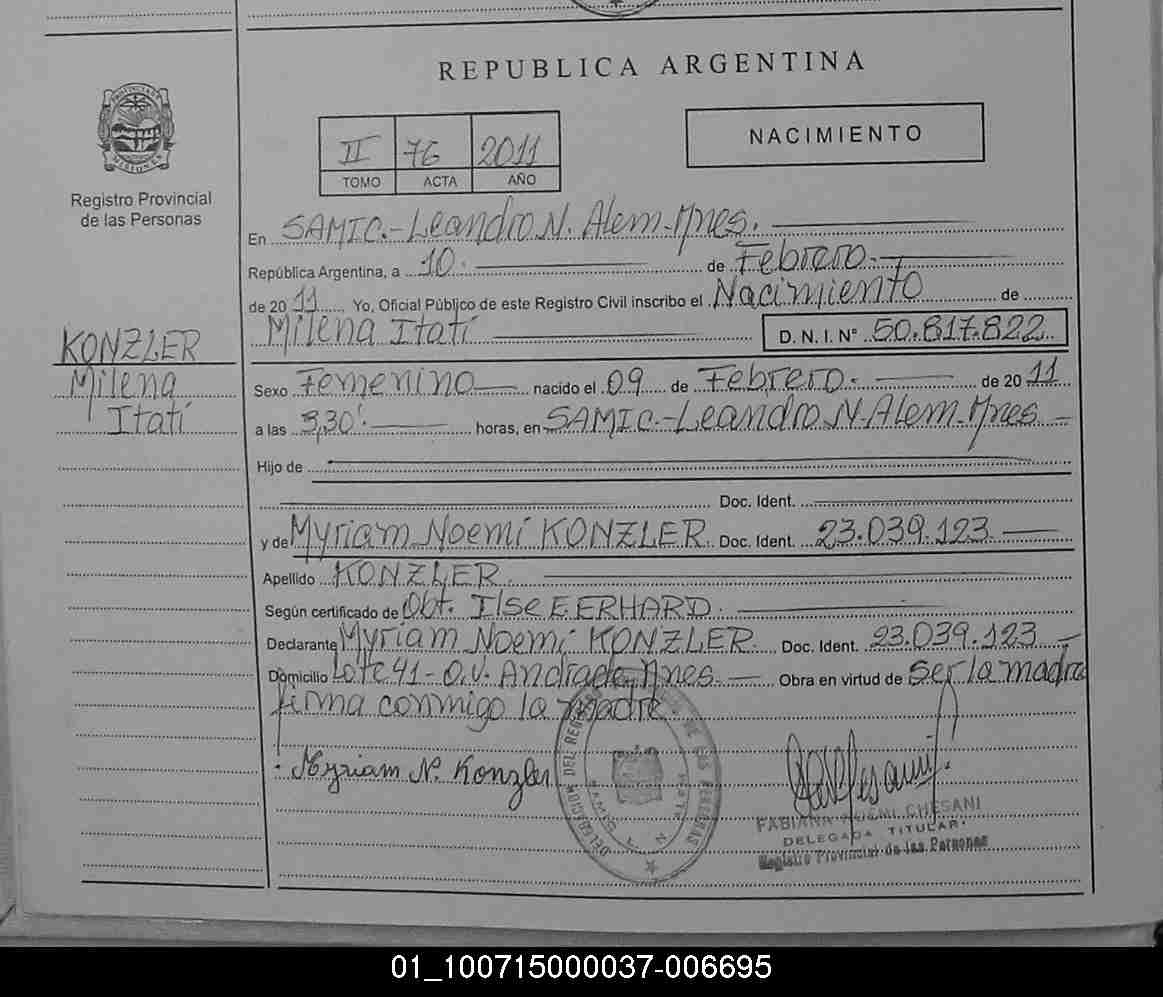 REPUBLICA ARGENTINA
PROVINCIA DE
MISIONES
Registro Provincial
de las Personas
II 76 2011
TOMO ACTA AÑO
NACIMIENTO
En SAMIC.-Leandro N. Alem-Mnes.
República Argentina, a 10. de Febrero.
de 2011 Yo, Oficial Público de este Registro Civil inscribo el Nacimiento de
Milena Itatí D. N. I. Nº 50.817.822
KONZLER
Milena
Itatí
Sexo Femenino nacido el 09 de Febrero. de 2011
a las 3,30' horas, en SAMIC.-Leandro N. Alem-Mnes.
Hijo de
Doc. Ident.
y de Myriam Noemí KONZLER. Doc. Ident. 23.039.123
Apellido KONZLER.
Según certificado de Obt. Ilse E. ERHARD.
Declarante Myriam Noemí KONZLER. Doc. Ident. 23.039.123
Domicilio Lote 41- O.V. Andrade-Mnes. Obra en virtud de ser la madre
firma conmigo la madre.
Myriam N. Konzler
DELEGACION DEL REG DE LAS PERSONAS
FABIANA NOEMI CHESANI
DELEGADA TITULAR
Registro Provincial de las Personas
01_100715000037-006695